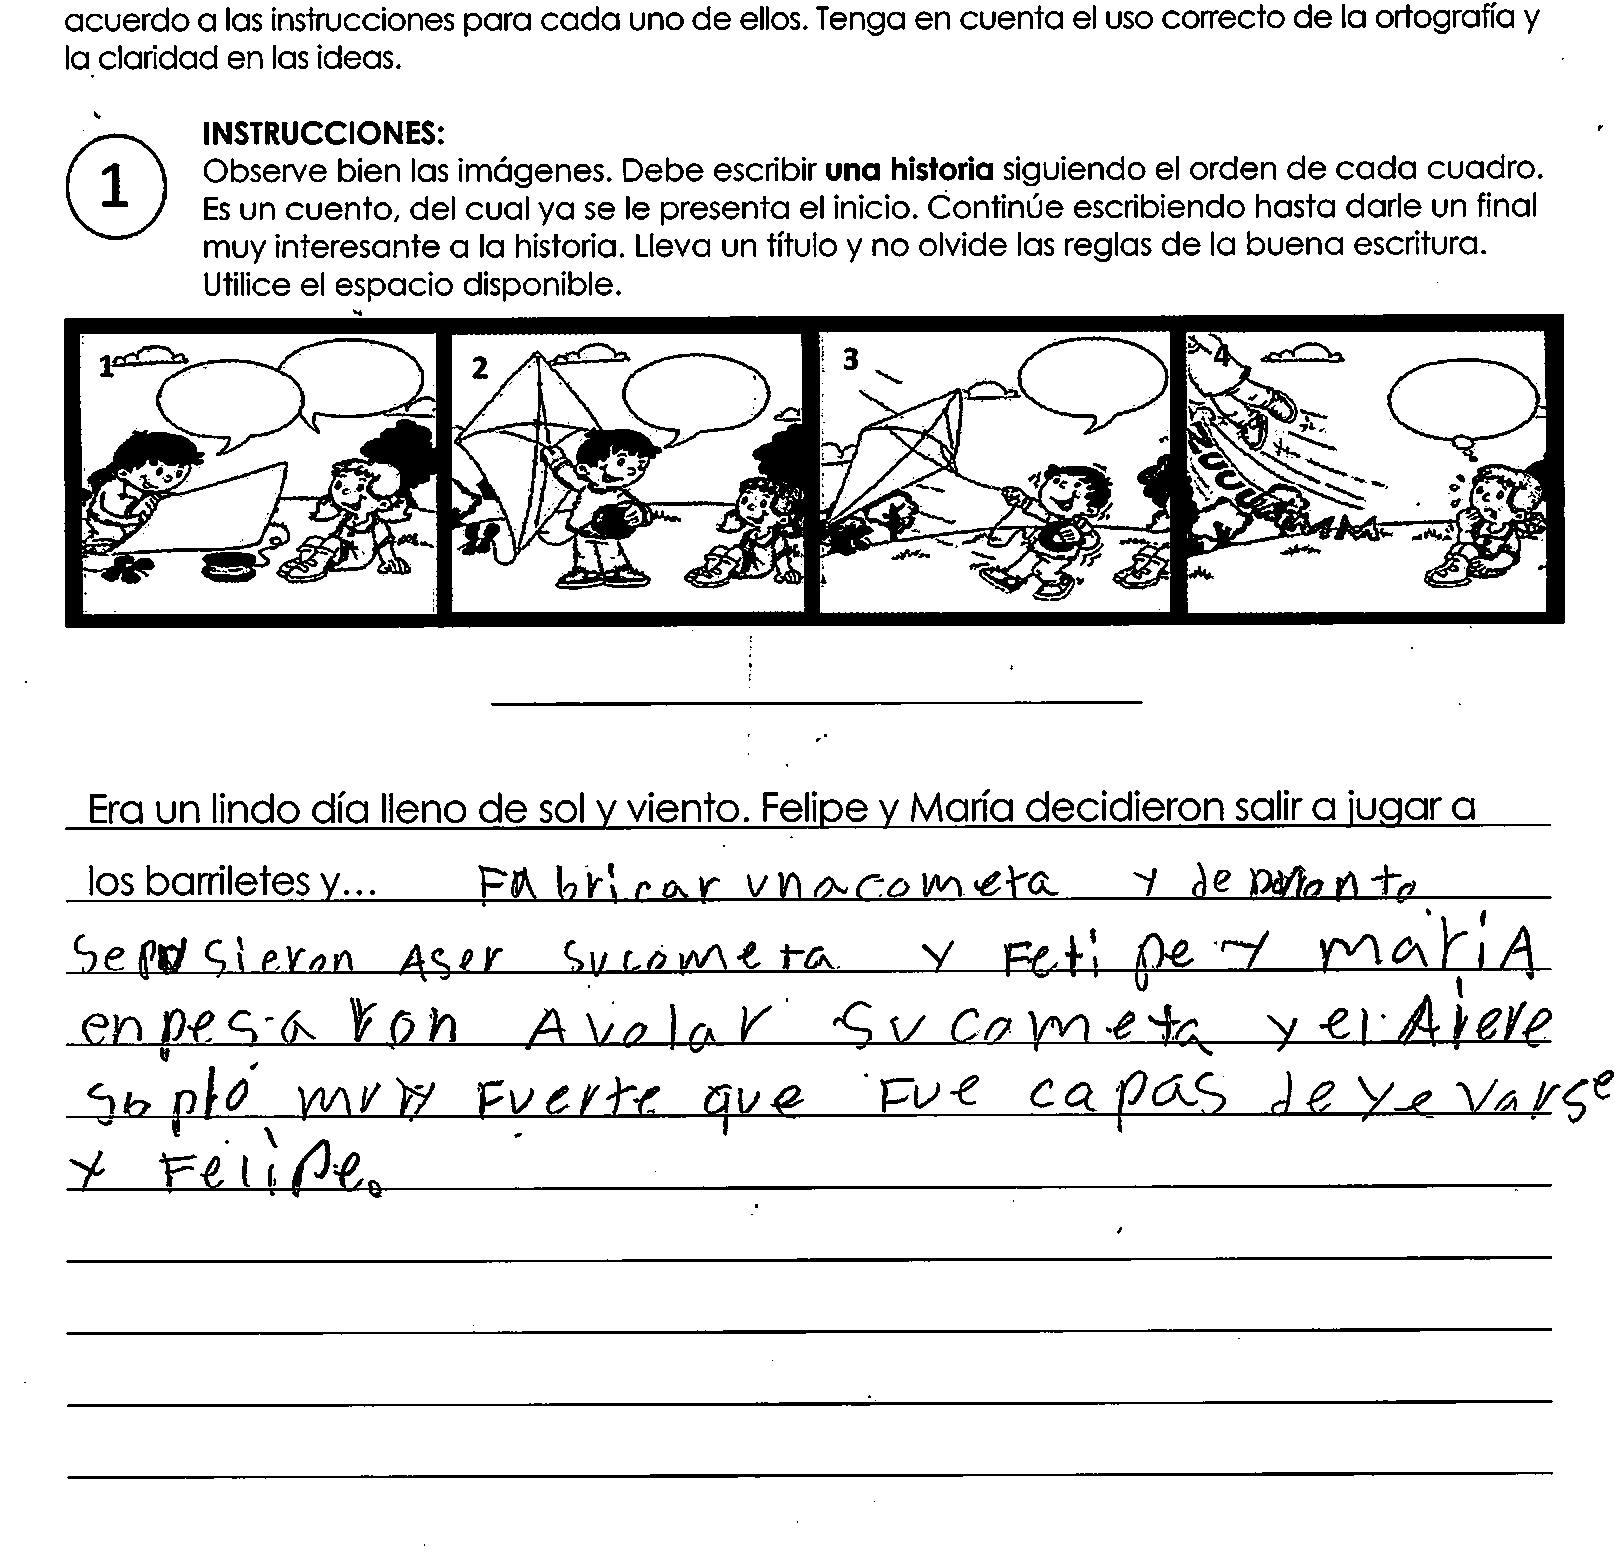 acuerdo a las instrucciones para cada uno de ellos. Tenga en cuenta el uso correcto de la ortografía y
la claridad en las ideas.
1
INSTRUCCIONES:
Observe bien las imágenes. Debe escribir una historia siguiendo el orden de cada cuadro.
Es un cuento, del cual ya se le presenta el inicio. Continúe escribiendo hasta darle un final
muy interesante a la historia. Lleva un título y no olvide las reglas de la buena escritura.
Utilice el espacio disponible.
1 2 3 4
Era un lindo día lleno de sol y viento. Felipe y María decidieron salir a jugar a
los barriletes y... FAbricar unacometa y de
se pusieron Aser sucometa y Fetipe y mariA
enpesaron Avolar su cometa y el Aiere
sopló muy Fuerte que Fue capas de yevarse
y Felipe.